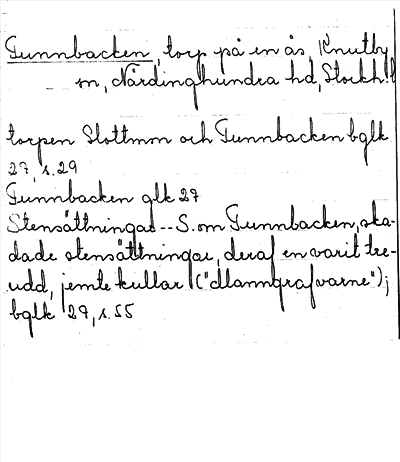 Tunnbacken, torp på en ås, Knutby
sn, Närdinghundra hd, Stockh. l
torpen Slottmon och Tunnbacken bglk
27, s. 29
Tunnbacken glk 27
Stensättningar -- S. om Tunnbacken, ska-
dade stensättningar, deraf en varit tre-
udd, jemte kullar ("dlanngrafvarne");
bglk 27, s. 55